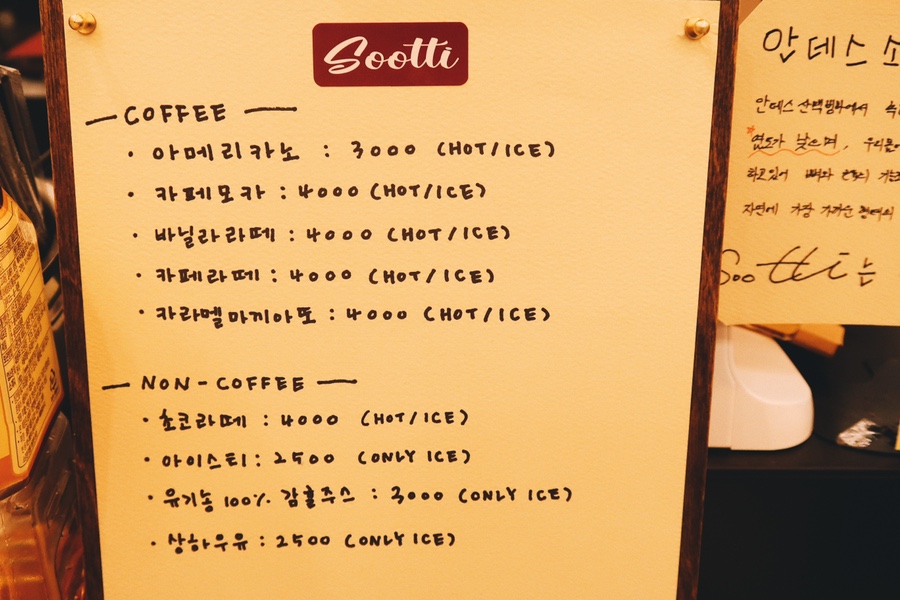 Sootti
— COFFEE —
· 아메리카노 : 3000 (HOT/ICE)
· 카페모카 : 4000 (HOT/ICE)
· 바닐라라떼 : 4000 (HOT/ICE)
· 카페라떼 : 4000 (HOT/ICE)
· 카라멜마끼아또 : 4000 (HOT/ICE)
— NON-COFFEE —
· 초코라떼 : 4000 (HOT/ICE)
· 아이스티 : 2500 (ONLY ICE)
· 유기농 100% 감귤주스 : 3000 (ONLY ICE)
· 상하우유 : 2500 (ONLY ICE)
안데스 소
안데스 산맥
염도가 낮으며,
하고있어
자연에 가장 가까운
Sootti는